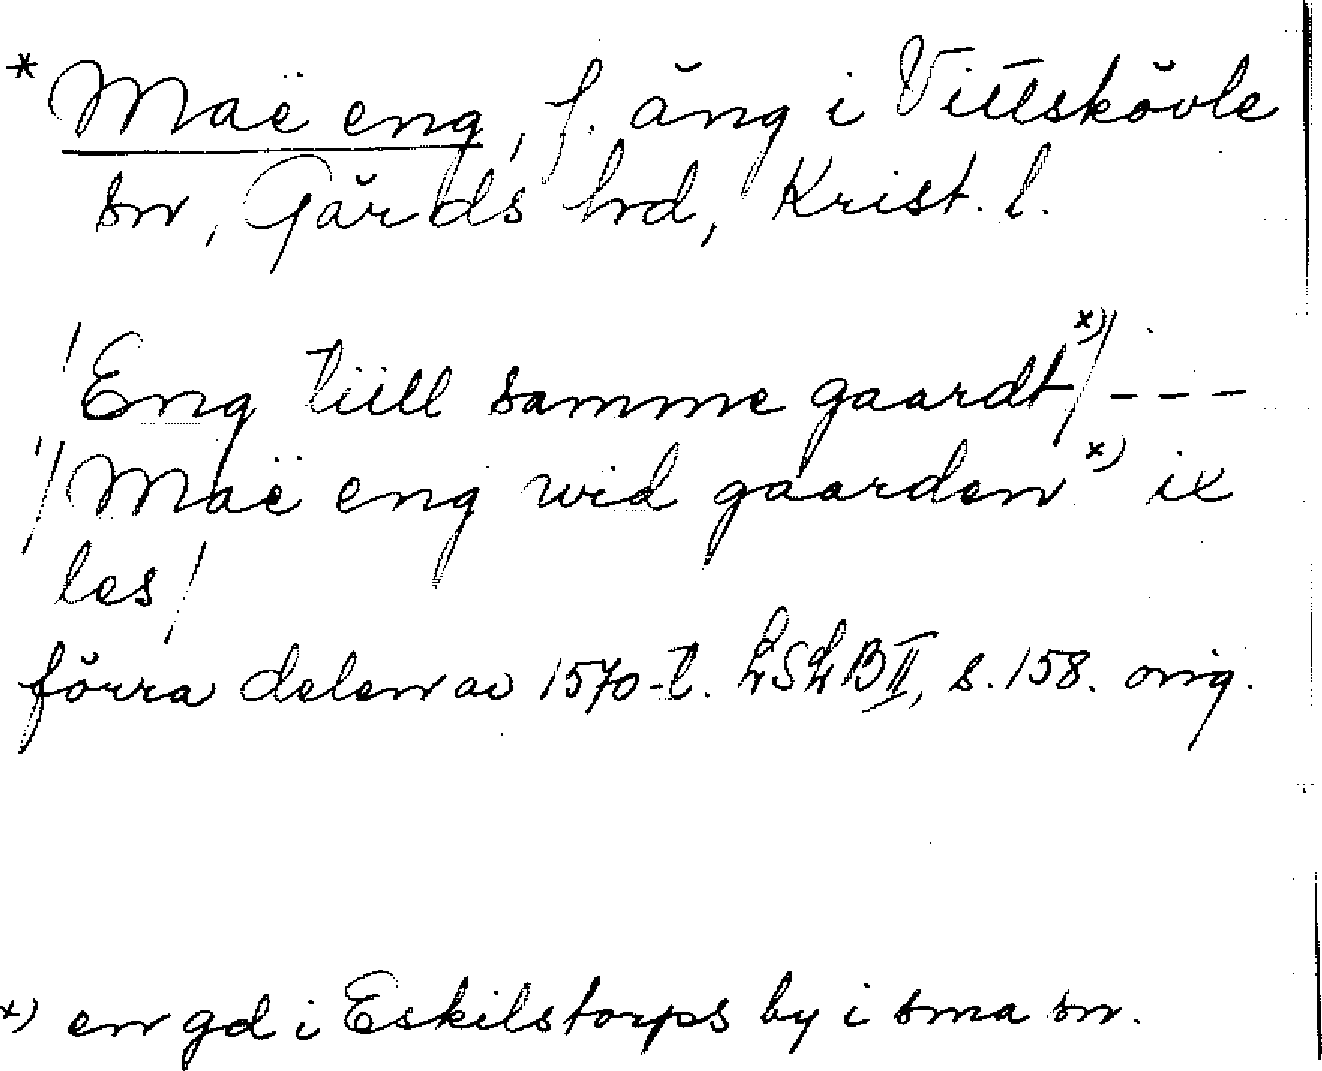 * Maë eng, f. äng i Vittskövle
sn, Gärds hrd, Krist. l.
/Eng tiill samme gaardt x)/ - - -
/Maë eng wid gaarden x) ix
les/
förra delen av 1570-t. LSLB II, s. 158. orig.
x) en gd i Eskilstorps by i sma sn.